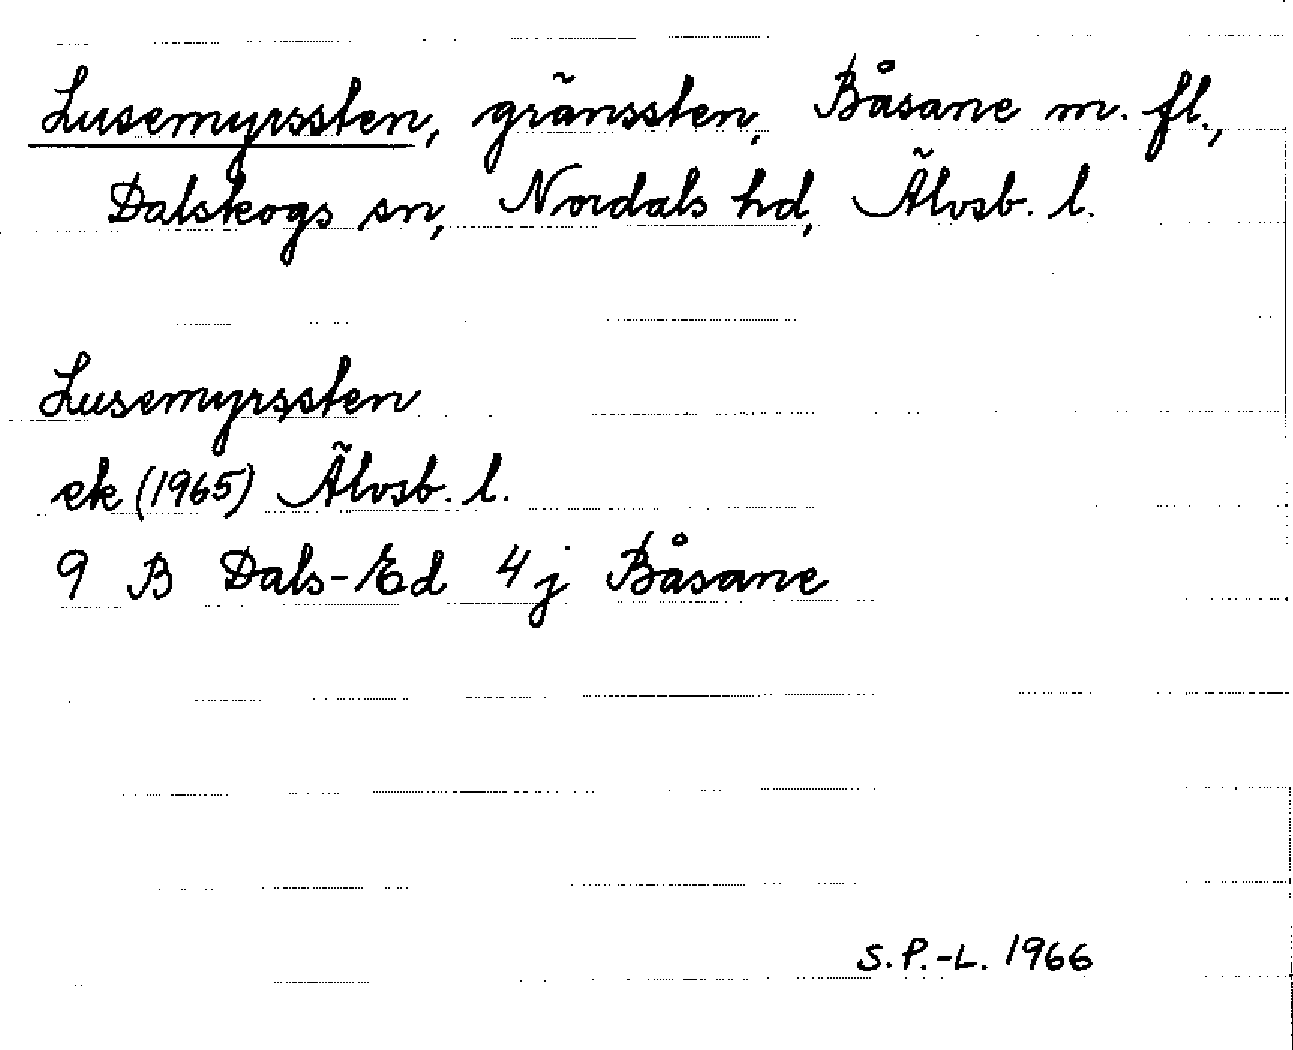 Lusemyrssten, gränssten, Båsane m. fl.,
Dalskogs sn, Nordals hd, Älvsb. l.
Lusemyrssten
ek (1965) Älvsb. l.
9 B Dals-Ed 4 j Båsane
S.P.-L. 1966